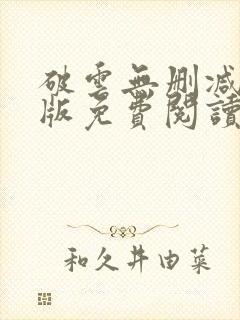 破雲無刪減
版免費閱讀
和久井由菜